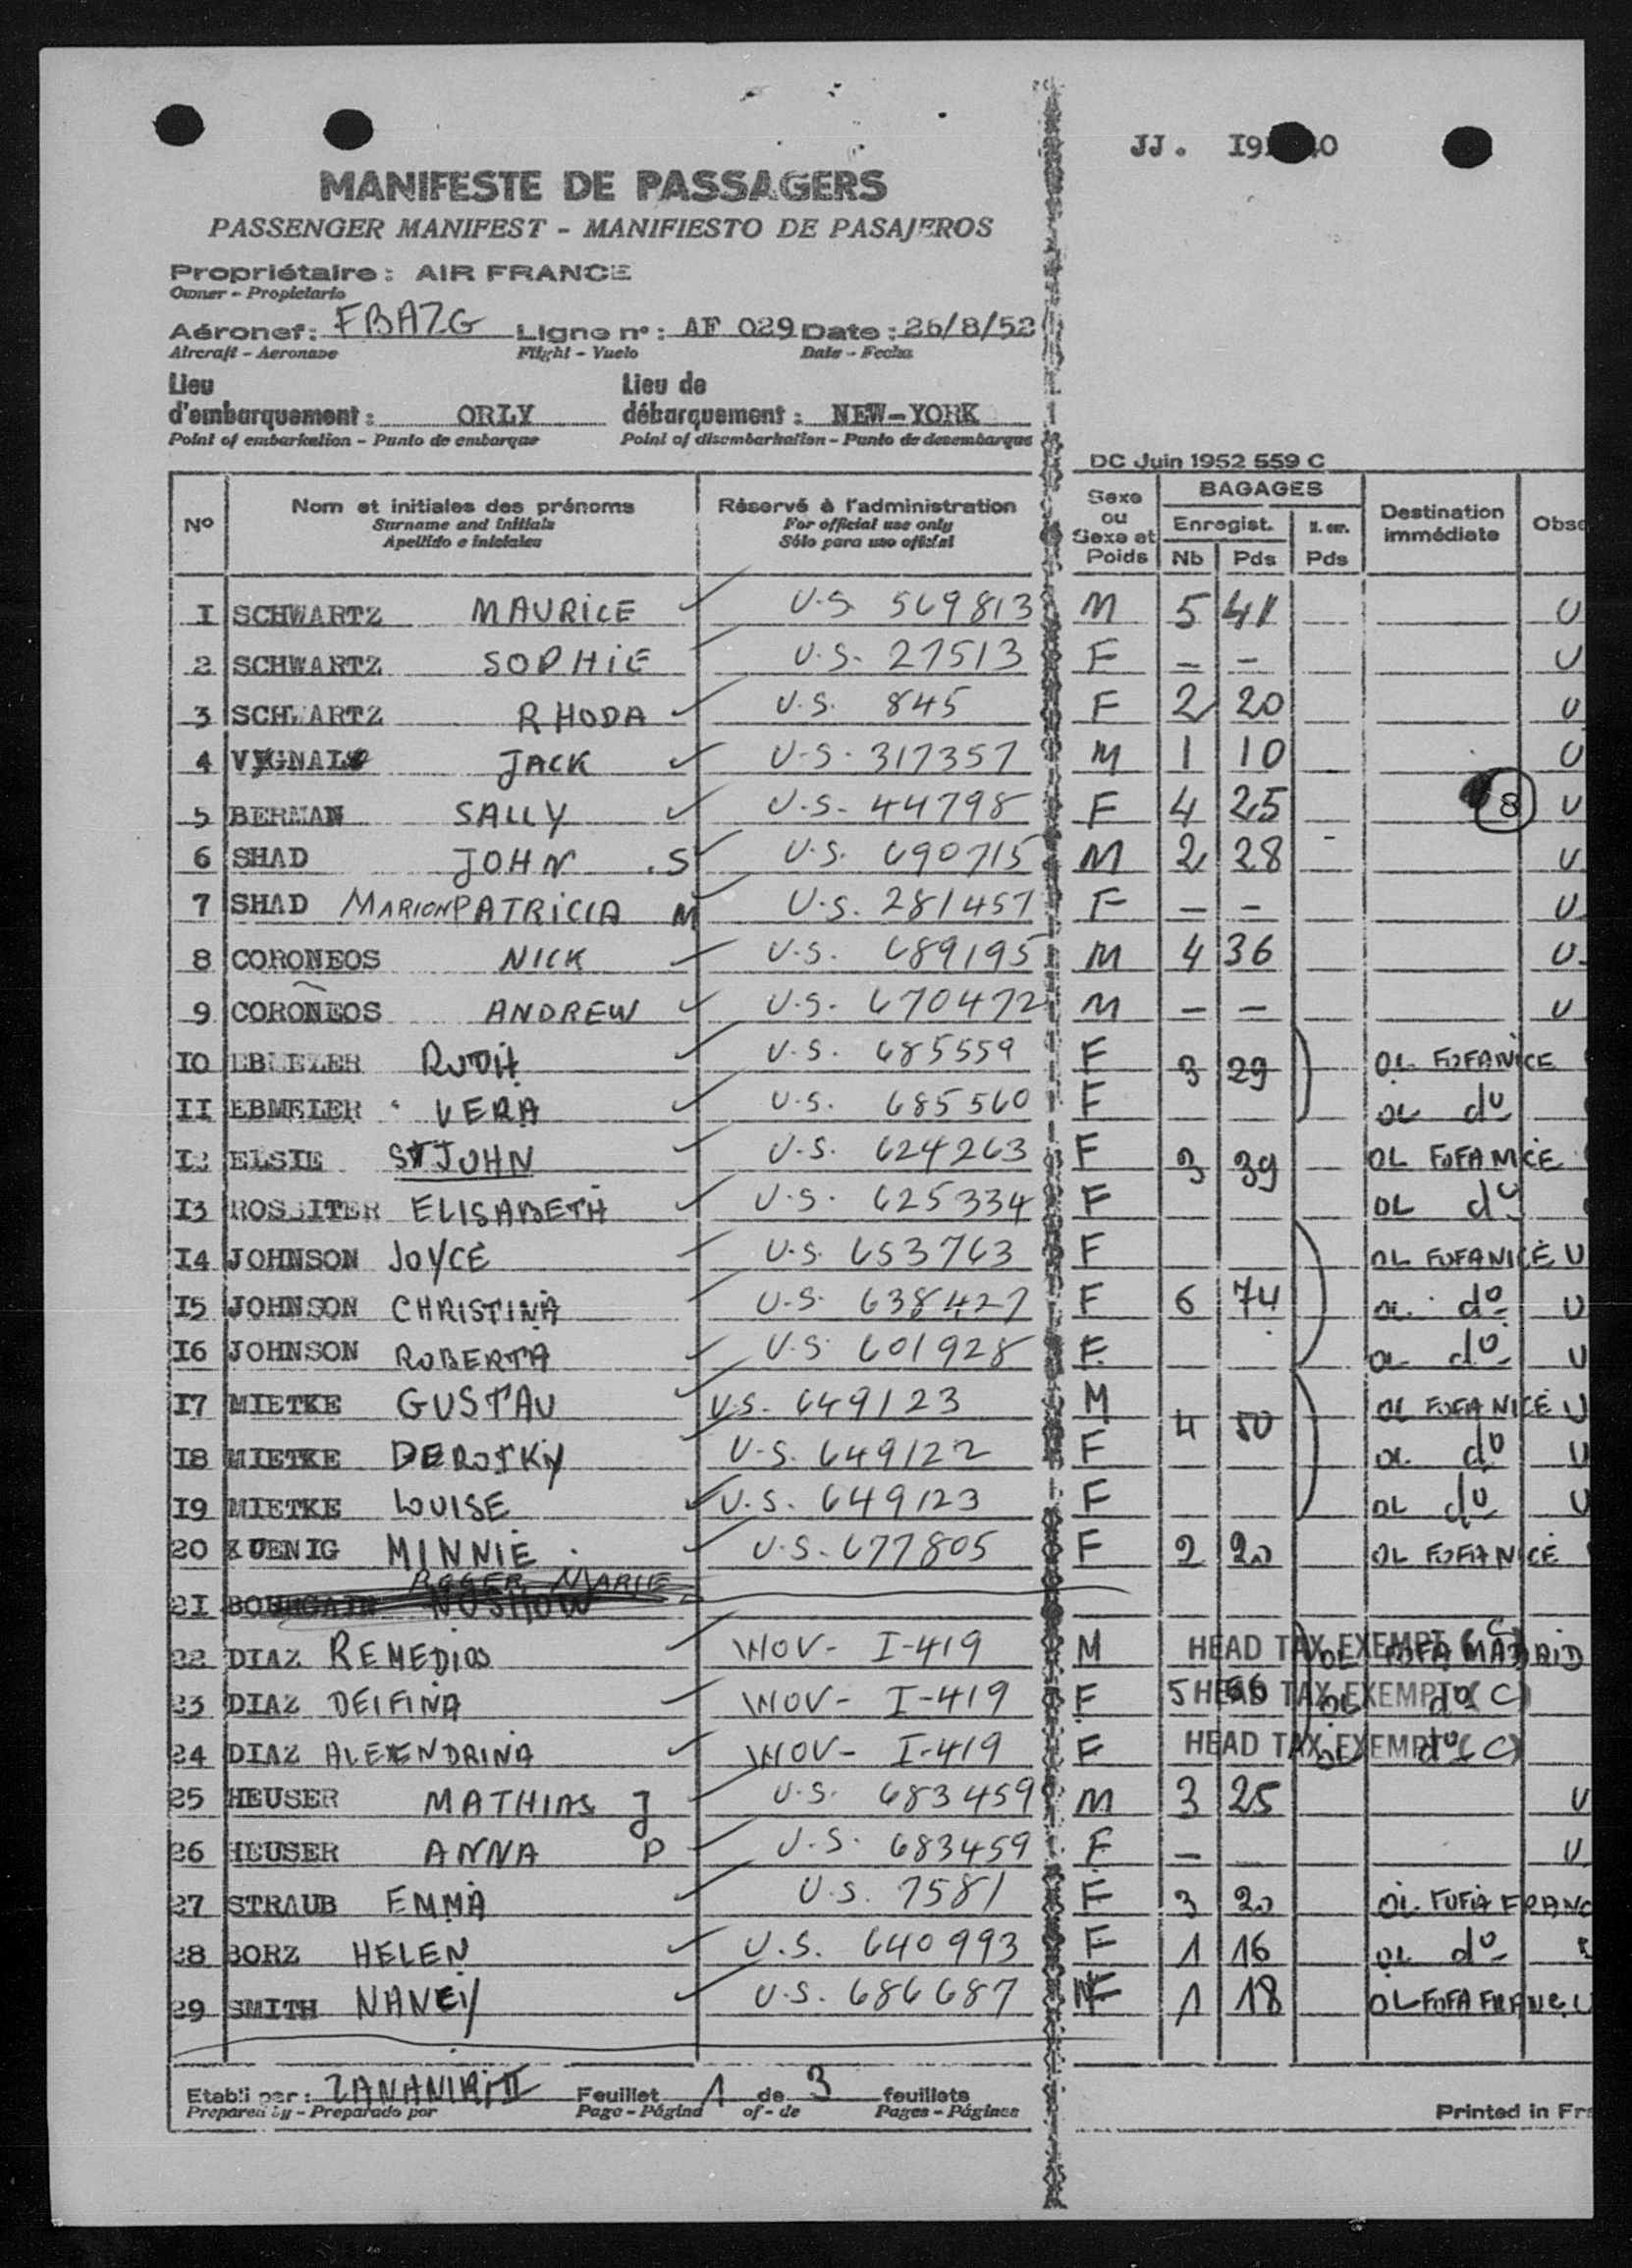 JJ. I9 0
MANIFESTE DE PASSAGERS
PASSENGER MANIFEST - MANIFIESTO DE PASAJEROS
Propriétaire : AIR FRANCE
Owner - Propietario
Aéronef : FBAZG Ligne n° : AF 029 Date : 26/8/52
Aircraft - Aeronave Flight - Vuelo Date - Fecha
Lieu d'embarquement : ORLY Lieu de débarquement : NEW-YORK
Point of embarkation - Punto de embarque Point of disembarkation - Punto de desembarque
DC Juin 1952 559 C
N° Nom et initiales des prénoms Réservé à l'administration Sexe ou Sexe et Poids BAGAGES Destination immédiate Obse
Surname and Initials For official use only Enregist. N. enr.
Apellido e iniciales Sólo para uso oficial Nb Pds Pds
I SCHWARTZ MAURICE U.S. 569813 M 5 41 U
2 SCHWARTZ SOPHIE U.S. 27513 F — — U
3 SCHWARTZ RHODA U.S. 845 F 2 20 U
4 JACK U.S. 317357 M 1 10 U
5 BERMAN SALLY U.S. 44798 F 4 25 8 U
6 SHAD JOHN .S U.S. 690715 M 2 28 U
7 SHAD MARION PATRICIA M U.S. 281457 F — — U
8 CORONEOS NICK U.S. 689195 M 4 36 U
9 CORONEOS ANDREW U.S. 670472 M — — U
IO RUTH U.S. 685559 F 3 29 OL FOFANICE
II EBMELER VERA U.S. 685560 F OL do
I2 ELSIE ST JOHN U.S. 624263 F 3 39 OL FOFANICE
I3 ROSSITER ELISABETH U.S. 625334 F OL do
I4 JOHNSON JOYCE U.S. 653763 F OL FOFANICE U
I5 JOHNSON CHRISTINA U.S. 638427 F 6 74 OL do U
I6 JOHNSON ROBERTA U.S. 601928 F OL do U
I7 MIETKE GUSTAV U.S. 649123 M 4 50 OL FOFANICE U
I8 MIETKE U.S. 649122 F OL do U
I9 MIETKE LOUISE U.S. 649123 F OL do U
20 KUENIG MINNIE U.S. 677805 F 2 20 OL FOFANICE
ROGER MARIE
2I NOSHOW
22 DIAZ REMEDIOS I-419 M HEAD TAX EXEMPT (C) OL FOFA MADRID
23 DIAZ DELFINA I-419 F 5 HEAD TAX EXEMPT (C) OL do
24 DIAZ ALEXENDRINA I-419 F HEAD TAX EXEMPT (C) OL do
25 HEUSER MATHIAS J U.S. 683459 M 3 25 U
26 HEUSER ANNA P U.S. 683459 F — U
27 STRAUB EMMA U.S. 7581 F 3 20 OL FOFA FRANC
28 BORZ HELEN U.S. 640993 F 1 16 OL do
29 SMITH NANCY U.S. 686687 F 1 18 OL FOFA FRANC U
Etabli par : Feuillet 1 de 3 feuillets
Prepared by - Preparado por Page - Página of - de Pages - Páginas
Printed in Fra